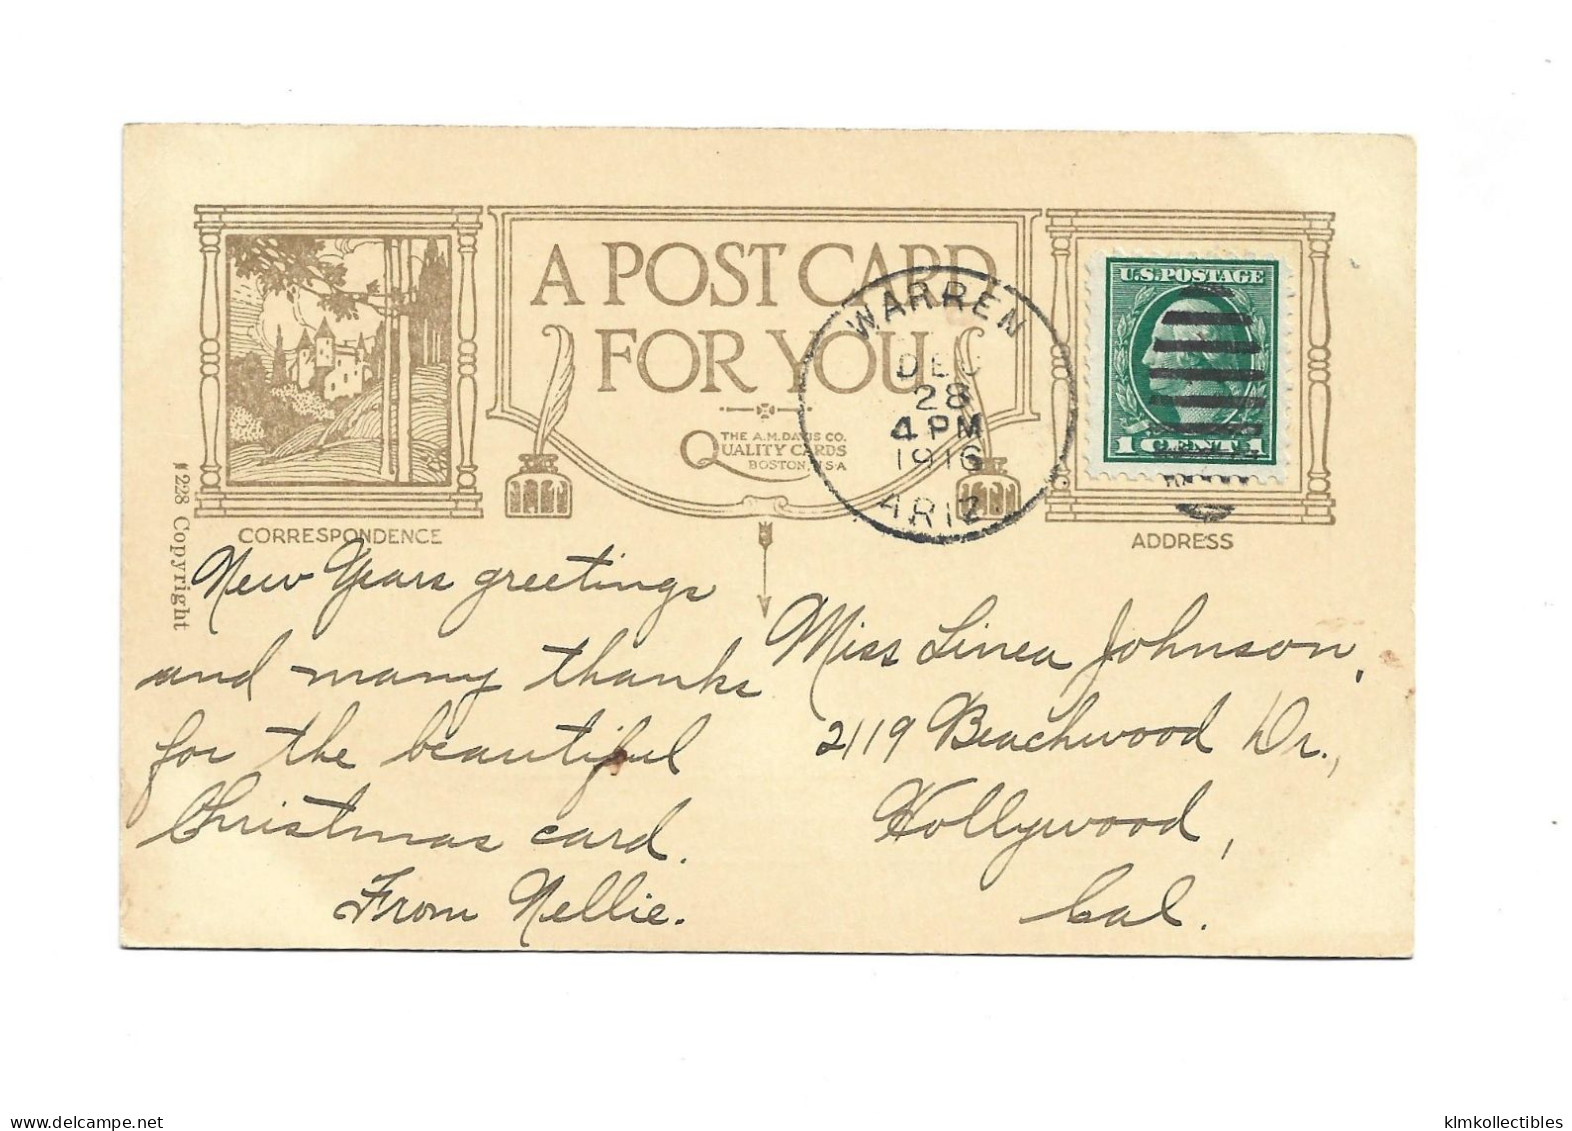 A POST CARD
FOR YOU
THE A.M. DAVIS CO.
QUALITY CARDS
BOSTON, U.S.A
WARREN
DEC
28
4 PM
1916
ARIZ.
U.S. POSTAGE
1 CENT 1
CORRESPONDENCE
ADDRESS
N 228 Copyright
New Years greetings
and many thanks
for the beautiful
Christmas card.
From Nellie.
Miss Linea Johnson,
2119 Beachwood Dr.,
Hollywood,
Cal.
delcampe.net
klmkollectibles